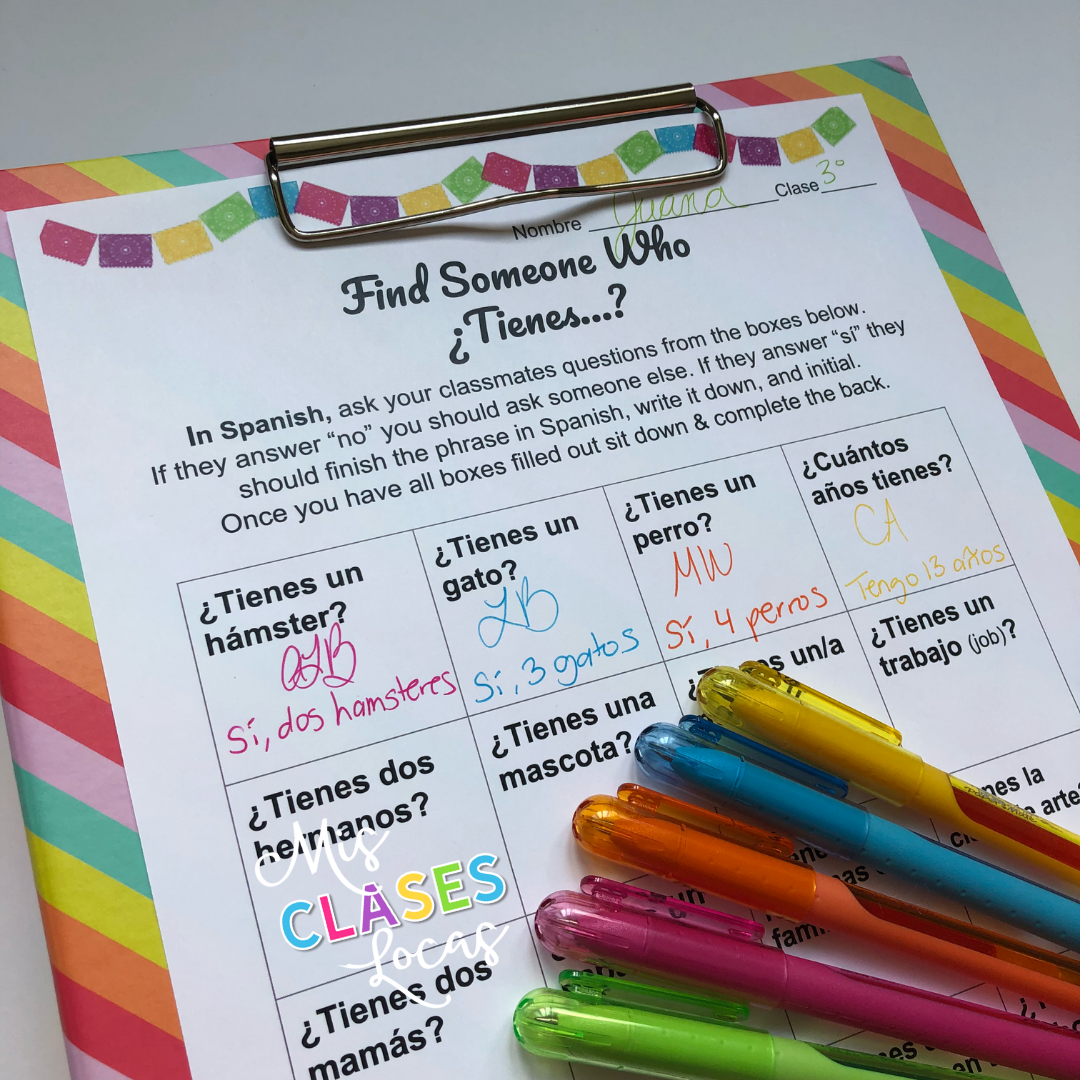 Nombre Juana Clase 3°
Find Someone Who
¿Tienes...?
In Spanish, ask your classmates questions from the boxes below.
If they answer "no" you should ask someone else. If they answer "sí" they
should finish the phrase in Spanish, write it down, and initial.
Once you have all boxes filled out sit down & complete the back.
¿Tienes un
hámster?
Sí, dos hamsteres
¿Tienes un
gato?
LB
Sí, 3 gatos
¿Tienes un
perro?
MW
Sí, 4 perros
¿Cuántos
años tienes?
CA
Tengo 13 años
¿Tienes dos
hermanos?
¿Tienes una
mascota?
un/a
¿Tienes un
trabajo (job)?
la
¿Tienes dos
mamás?
Mis
CLASES
Locas